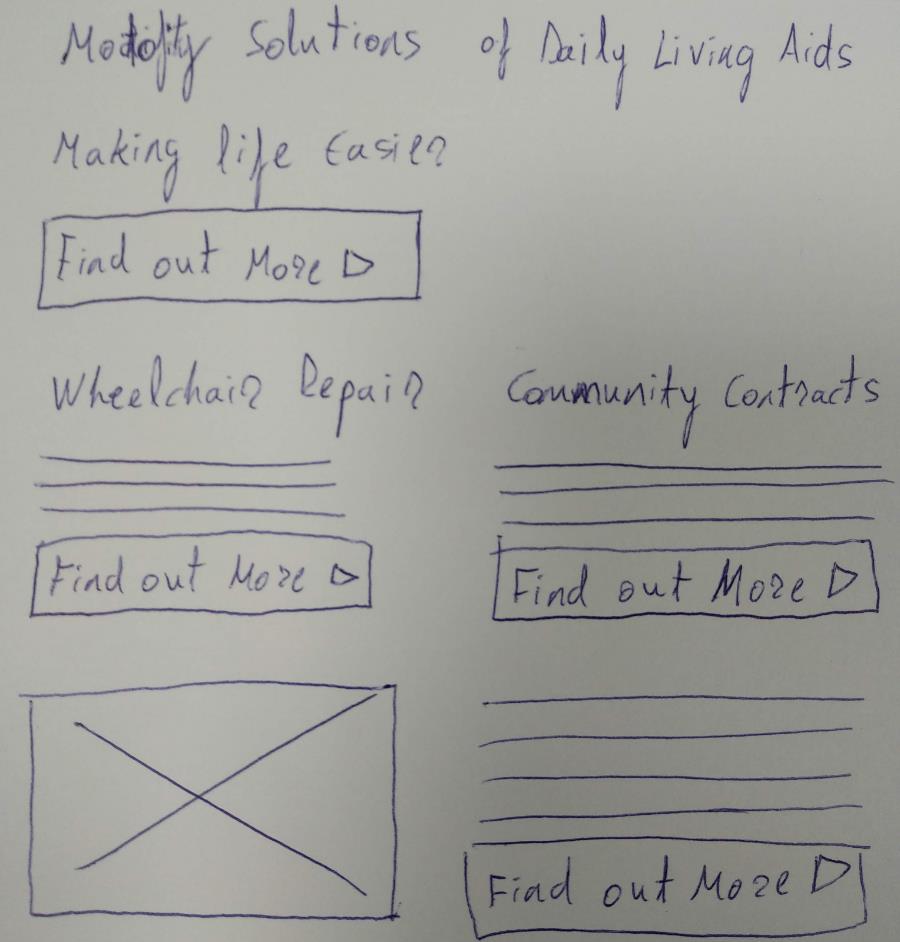 Solutions of Daily Living Aids
Making life Easier
Find out More
Wheelchair Repair
Community Contracts
Find out More
Find out More
Find out More